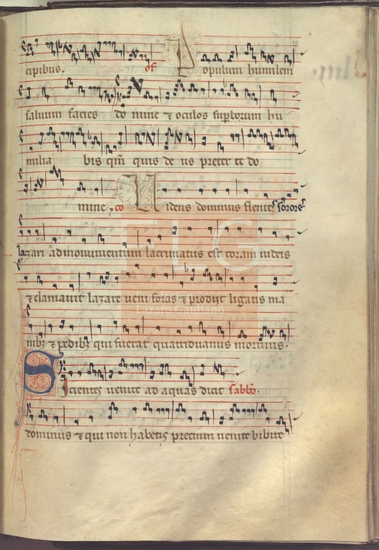 cipibus. of Populum humilem
saluum facies do mine & oculos suꝑborum hu
milia bis qm̄ quis de us preter te do
mine. co Uidens dominus flentes sorores
lazari ad monumentum lacrimatus est coram iudeis
& clamauit lazare ueni foras & prodiit ligatis ma
nibꝫ & pedibꝫ qui fuerat quatriduanus mortuus.
Sicientes uenite ad aquas dicit sabbo.
dominus & qui non habetis precium uenite bibite